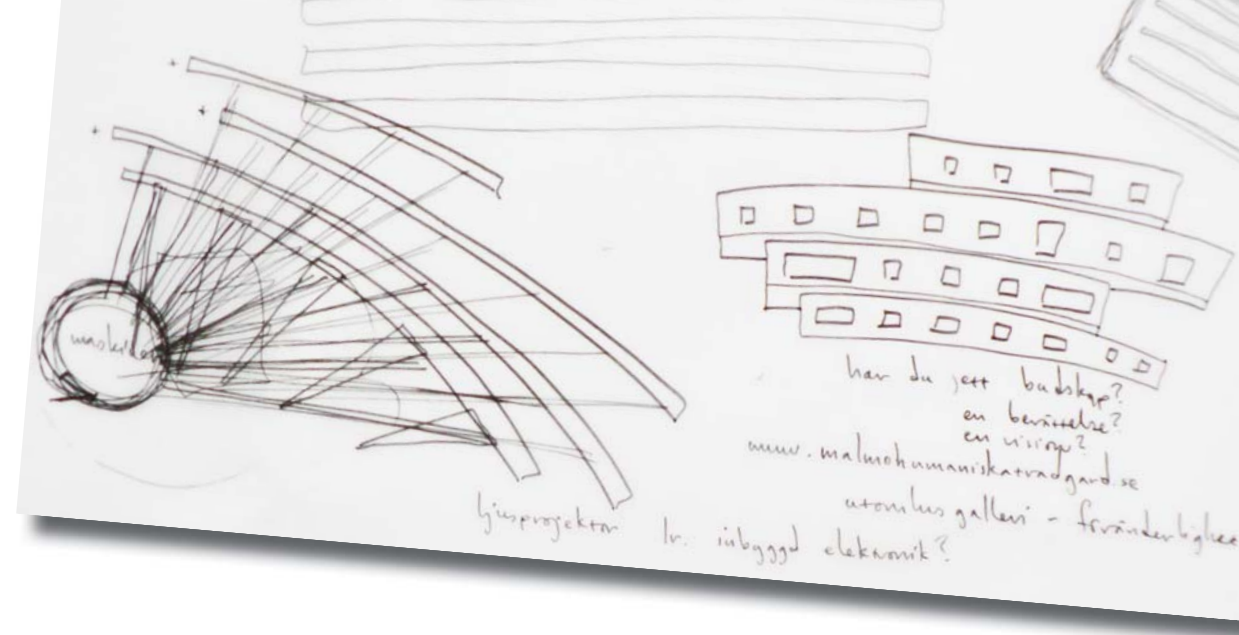 maskinen
har du ett budskap?
en berättelse?
en vision?
www.malmohumaniskatradgard.se
utomhus galleri - föränderlighet
ljusprojektor lr. inbyggd elektronik?